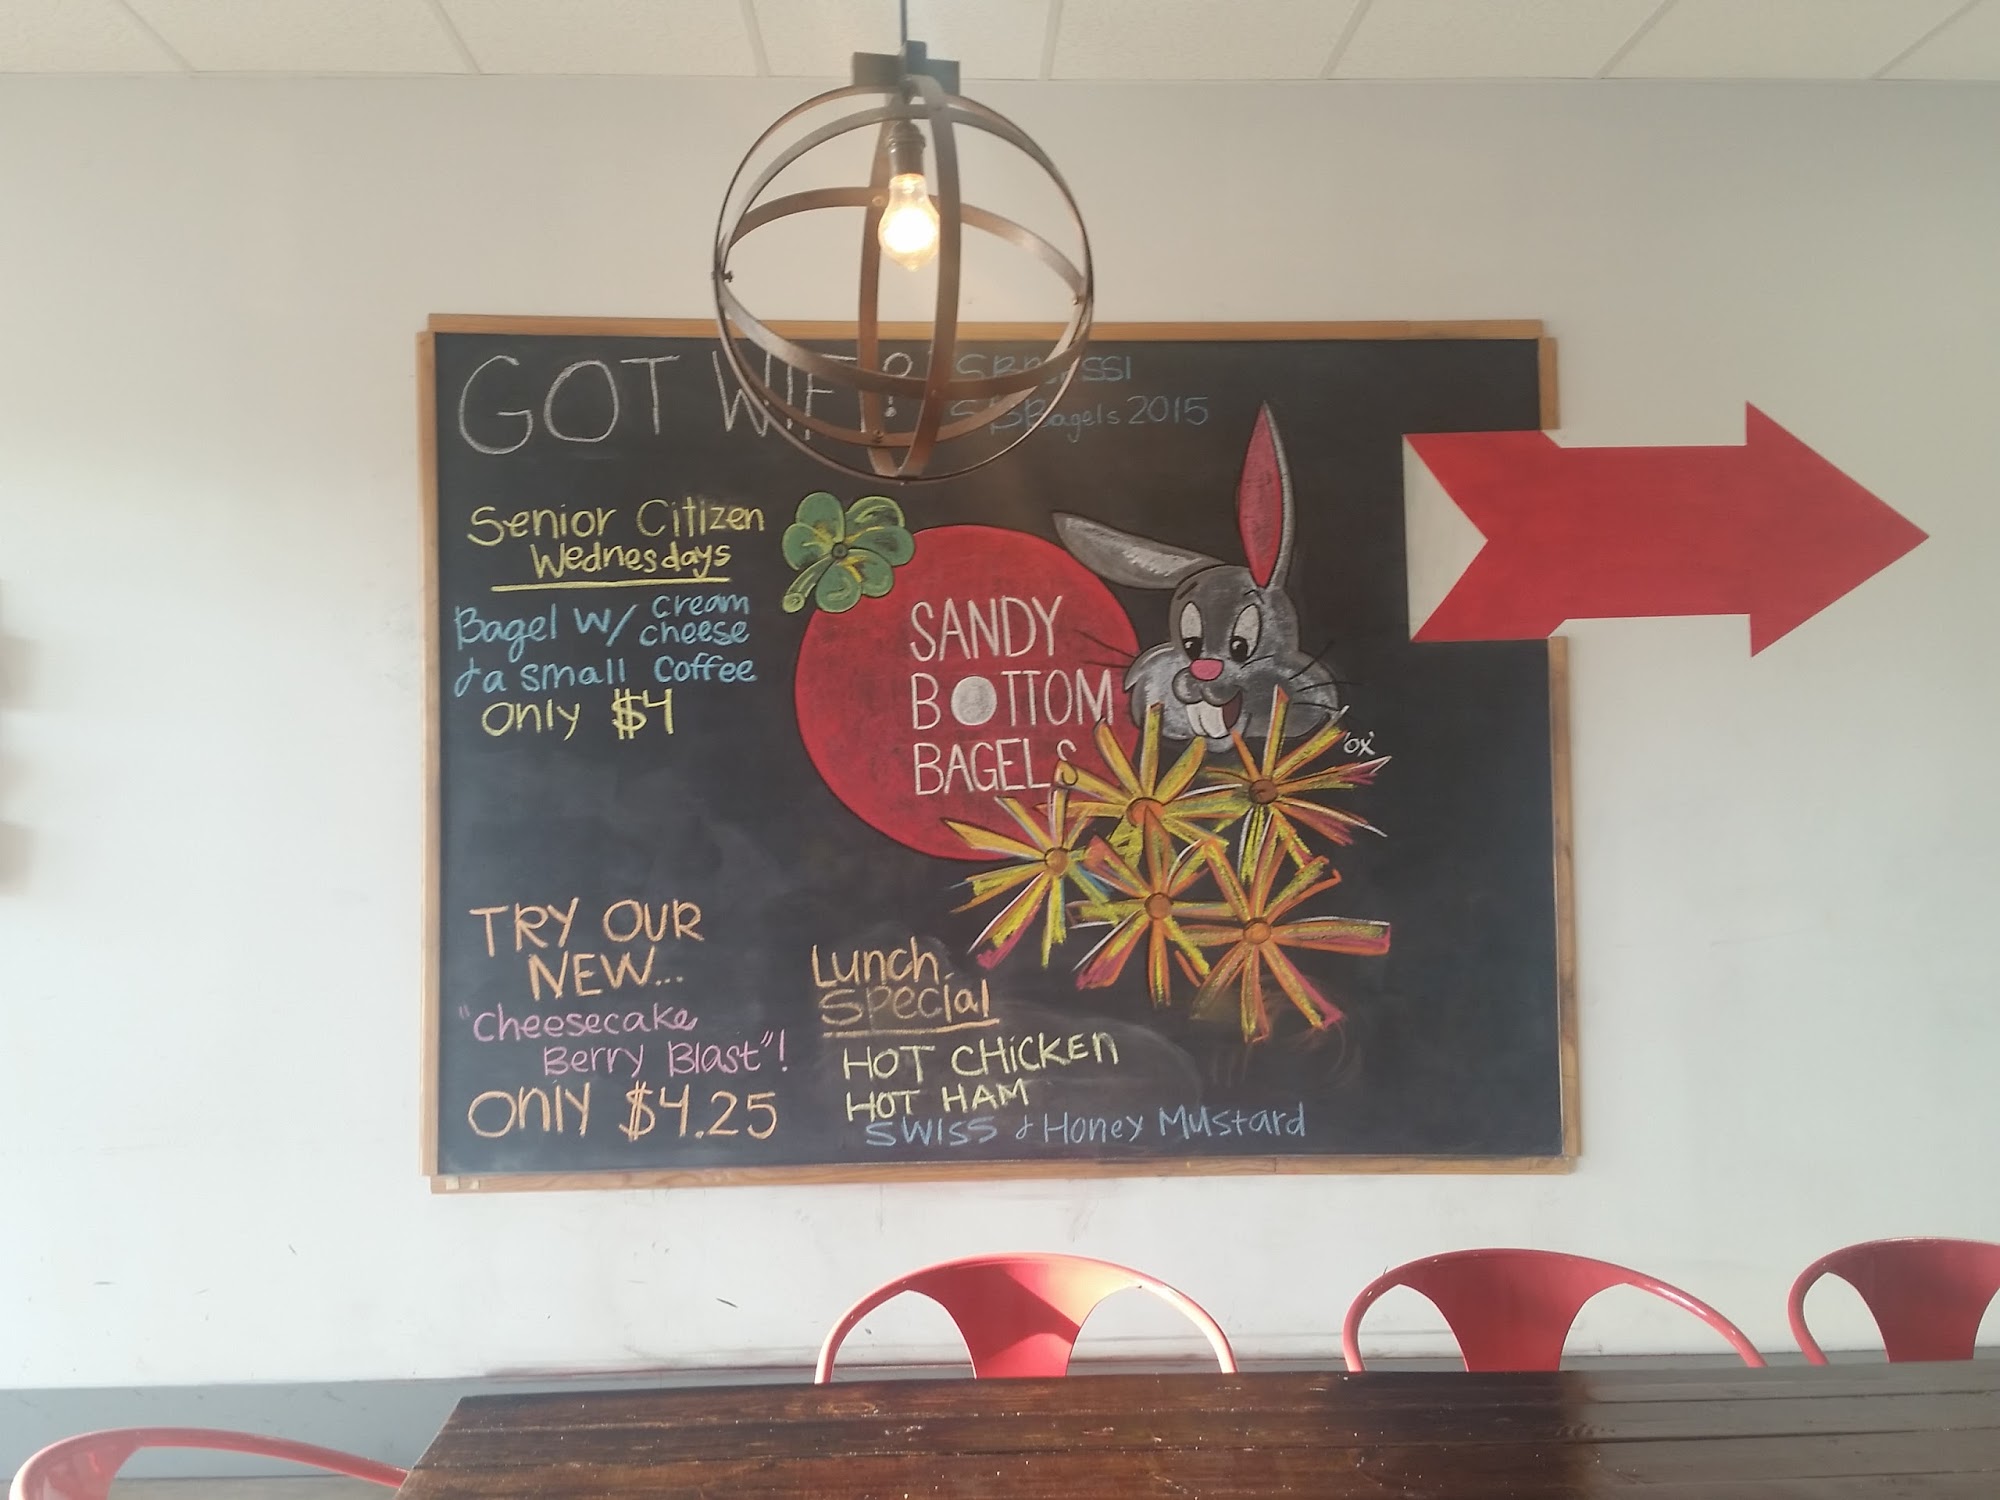 GOT WIFI?
SBBagels 2015
Senior Citizen
Wednesdays
Bagel w/ cream
cheese
& a small coffee
only $4
SANDY
BOTTOM
BAGELS
'ox'
TRY OUR
NEW...
"Cheesecake
Berry Blast"!
only $4.25
Lunch
Special
HOT CHICKEN
HOT HAM
SWISS & Honey Mustard